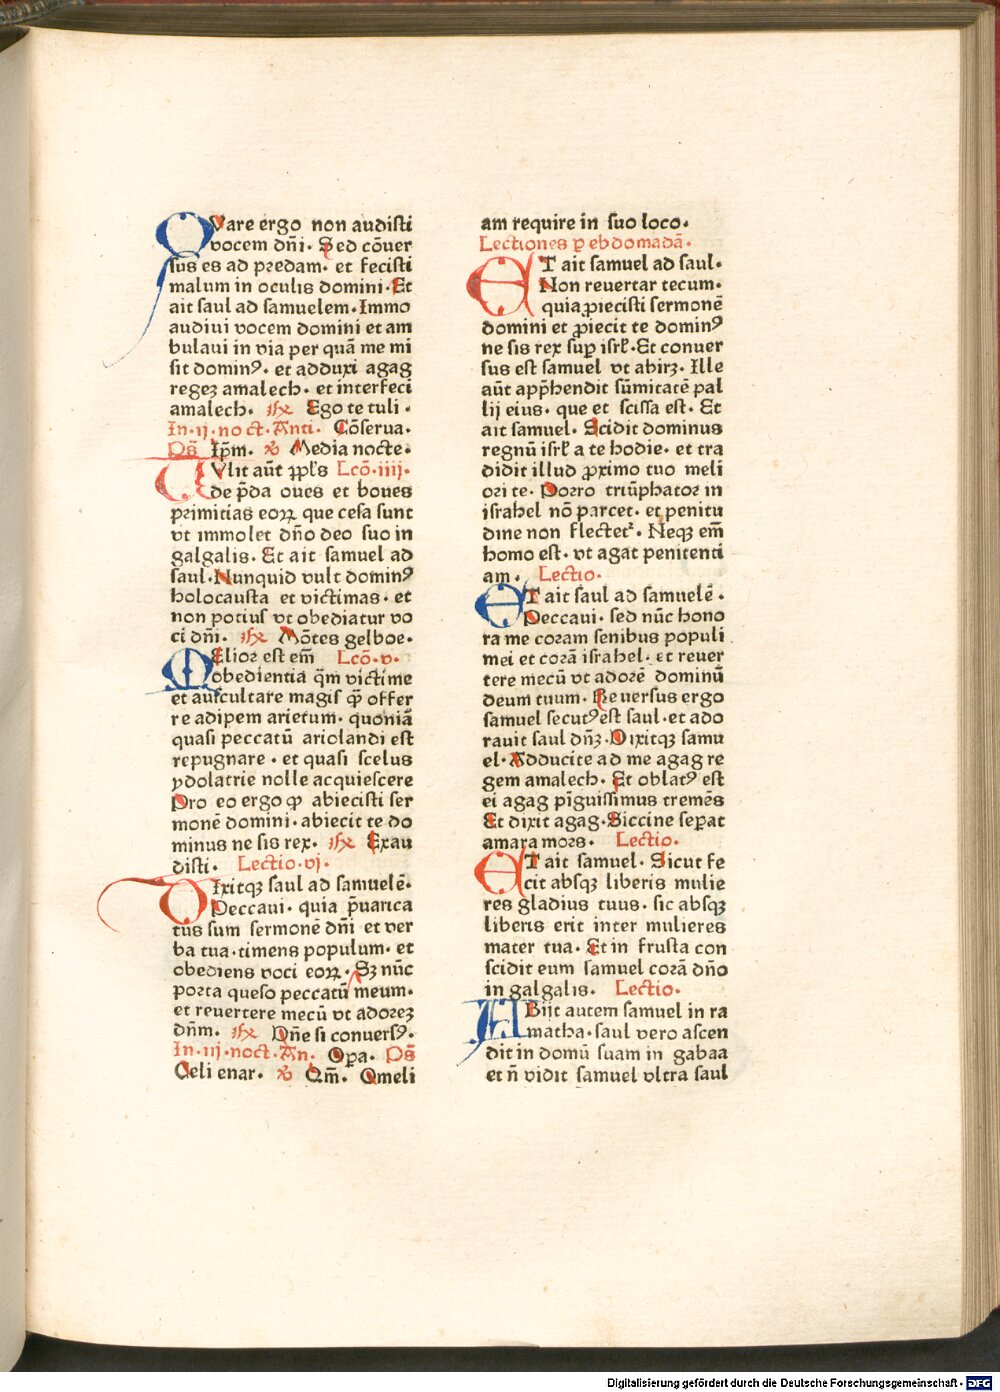 QVare ergo non audisti
vocem dñi. Sed cõuer
sus es ad predam. et fecisti
malum in oculis domini. Et
ait saul ad samuelem. Immo
audiui vocem domini et am
bulaui in via per quã me mi
sit dominꝰ. et adduxi agag
regeꝫ amalech. et interfeci
amalech. ℟ Ego te tuli.
In.ij.noct.Anti. Cõserua.
Ps̃ Ip̃m. ℣ Media nocte.
TVlit aũt pp̃ls Lcõ.iiij.
de p̃da oues et boues
primitias eoꝝ que cesa sunt
vt immolet dño deo suo in
galgalis. Et ait samuel ad
saul. Nunquid vult dominꝰ
holocausta et victimas. et
non potius vt obediatur vo
ci dñi. ℟ Mõtes gelboe.
MElior est em̃ Lcõ.v.
obedientia q̃m victime
et auscultare magis q̃ offer
re adipem arietum. quoniã
quasi peccatũ ariolandi est
repugnare. et quasi scelus
ydolatrie nolle acquiescere
Pro eo ergo ꝙ abiecisti ser
monẽ domini. abiecit te do
minus ne sis rex. ℟ Exau
disti. Lectio.vj.
DIxitqꝫ saul ad samuelẽ.
Peccaui. quia p̃uarica
tus sum sermonẽ dñi et ver
ba tua. timens populum. et
obediens voci eoꝝ. Sꝫ nũc
porta queso peccatũ meum.
et reuertere mecũ vt adoreꝫ
dñm. ℟ Dñe si conuersꝰ.
In.iij.noct.An. Oꝑa. Ps̃
Celi enar. ℣ Qm̃. Omeli
am require in suo loco.
Lectiones ꝑ ebdomadã.
ET ait samuel ad saul.
Non reuertar tecum.
quia ꝓiecisti sermonẽ
domini et ꝓiecit te dominꝰ
ne sis rex suꝑ isrł. Et conuer
sus est samuel vt abirꝫ. Ille
aũt app̃hendit sũmitatẽ pal
lij eius. que et scissa est. Et
ait samuel. Scidit dominus
regnũ isrł a te hodie. et tra
didit illud ꝓximo tuo meli
ori te. Porro triũphator in
israhel nõ parcet. et penitu
dine non flectetᷣ. Neqꝫ em̃
homo est. vt agat penitenti
am. Lectio.
ET ait saul ad samuelẽ.
Peccaui. sed nũc hono
ra me coram senibus populi
mei et corã israhel. et reuer
tere mecũ vt adorẽ dominũ
deum tuum. Reuersus ergo
samuel secutꝰ est saul. et ado
rauit saul dñꝫ. Dixitqꝫ samu
el. Adducite ad me agag re
gem amalech. Et oblatꝰ est
ei agag pĩguissimus tremẽs
Et dixit agag. Siccine seꝑat
amara mors. Lectio.
ET ait samuel. Sicut fe
cit absqꝫ liberis mulie
res gladius tuus. sic absqꝫ
liberis erit inter mulieres
mater tua. Et in frusta con
scidit eum samuel corã dño
in galgalis. Lectio.
ABijt autem samuel in ra
matha. saul vero ascen
dit in domũ suam in gabaa
et ñ vidit samuel vltra saul
Digitalisierung gefördert durch die Deutsche Forschungsgemeinschaft - DFG